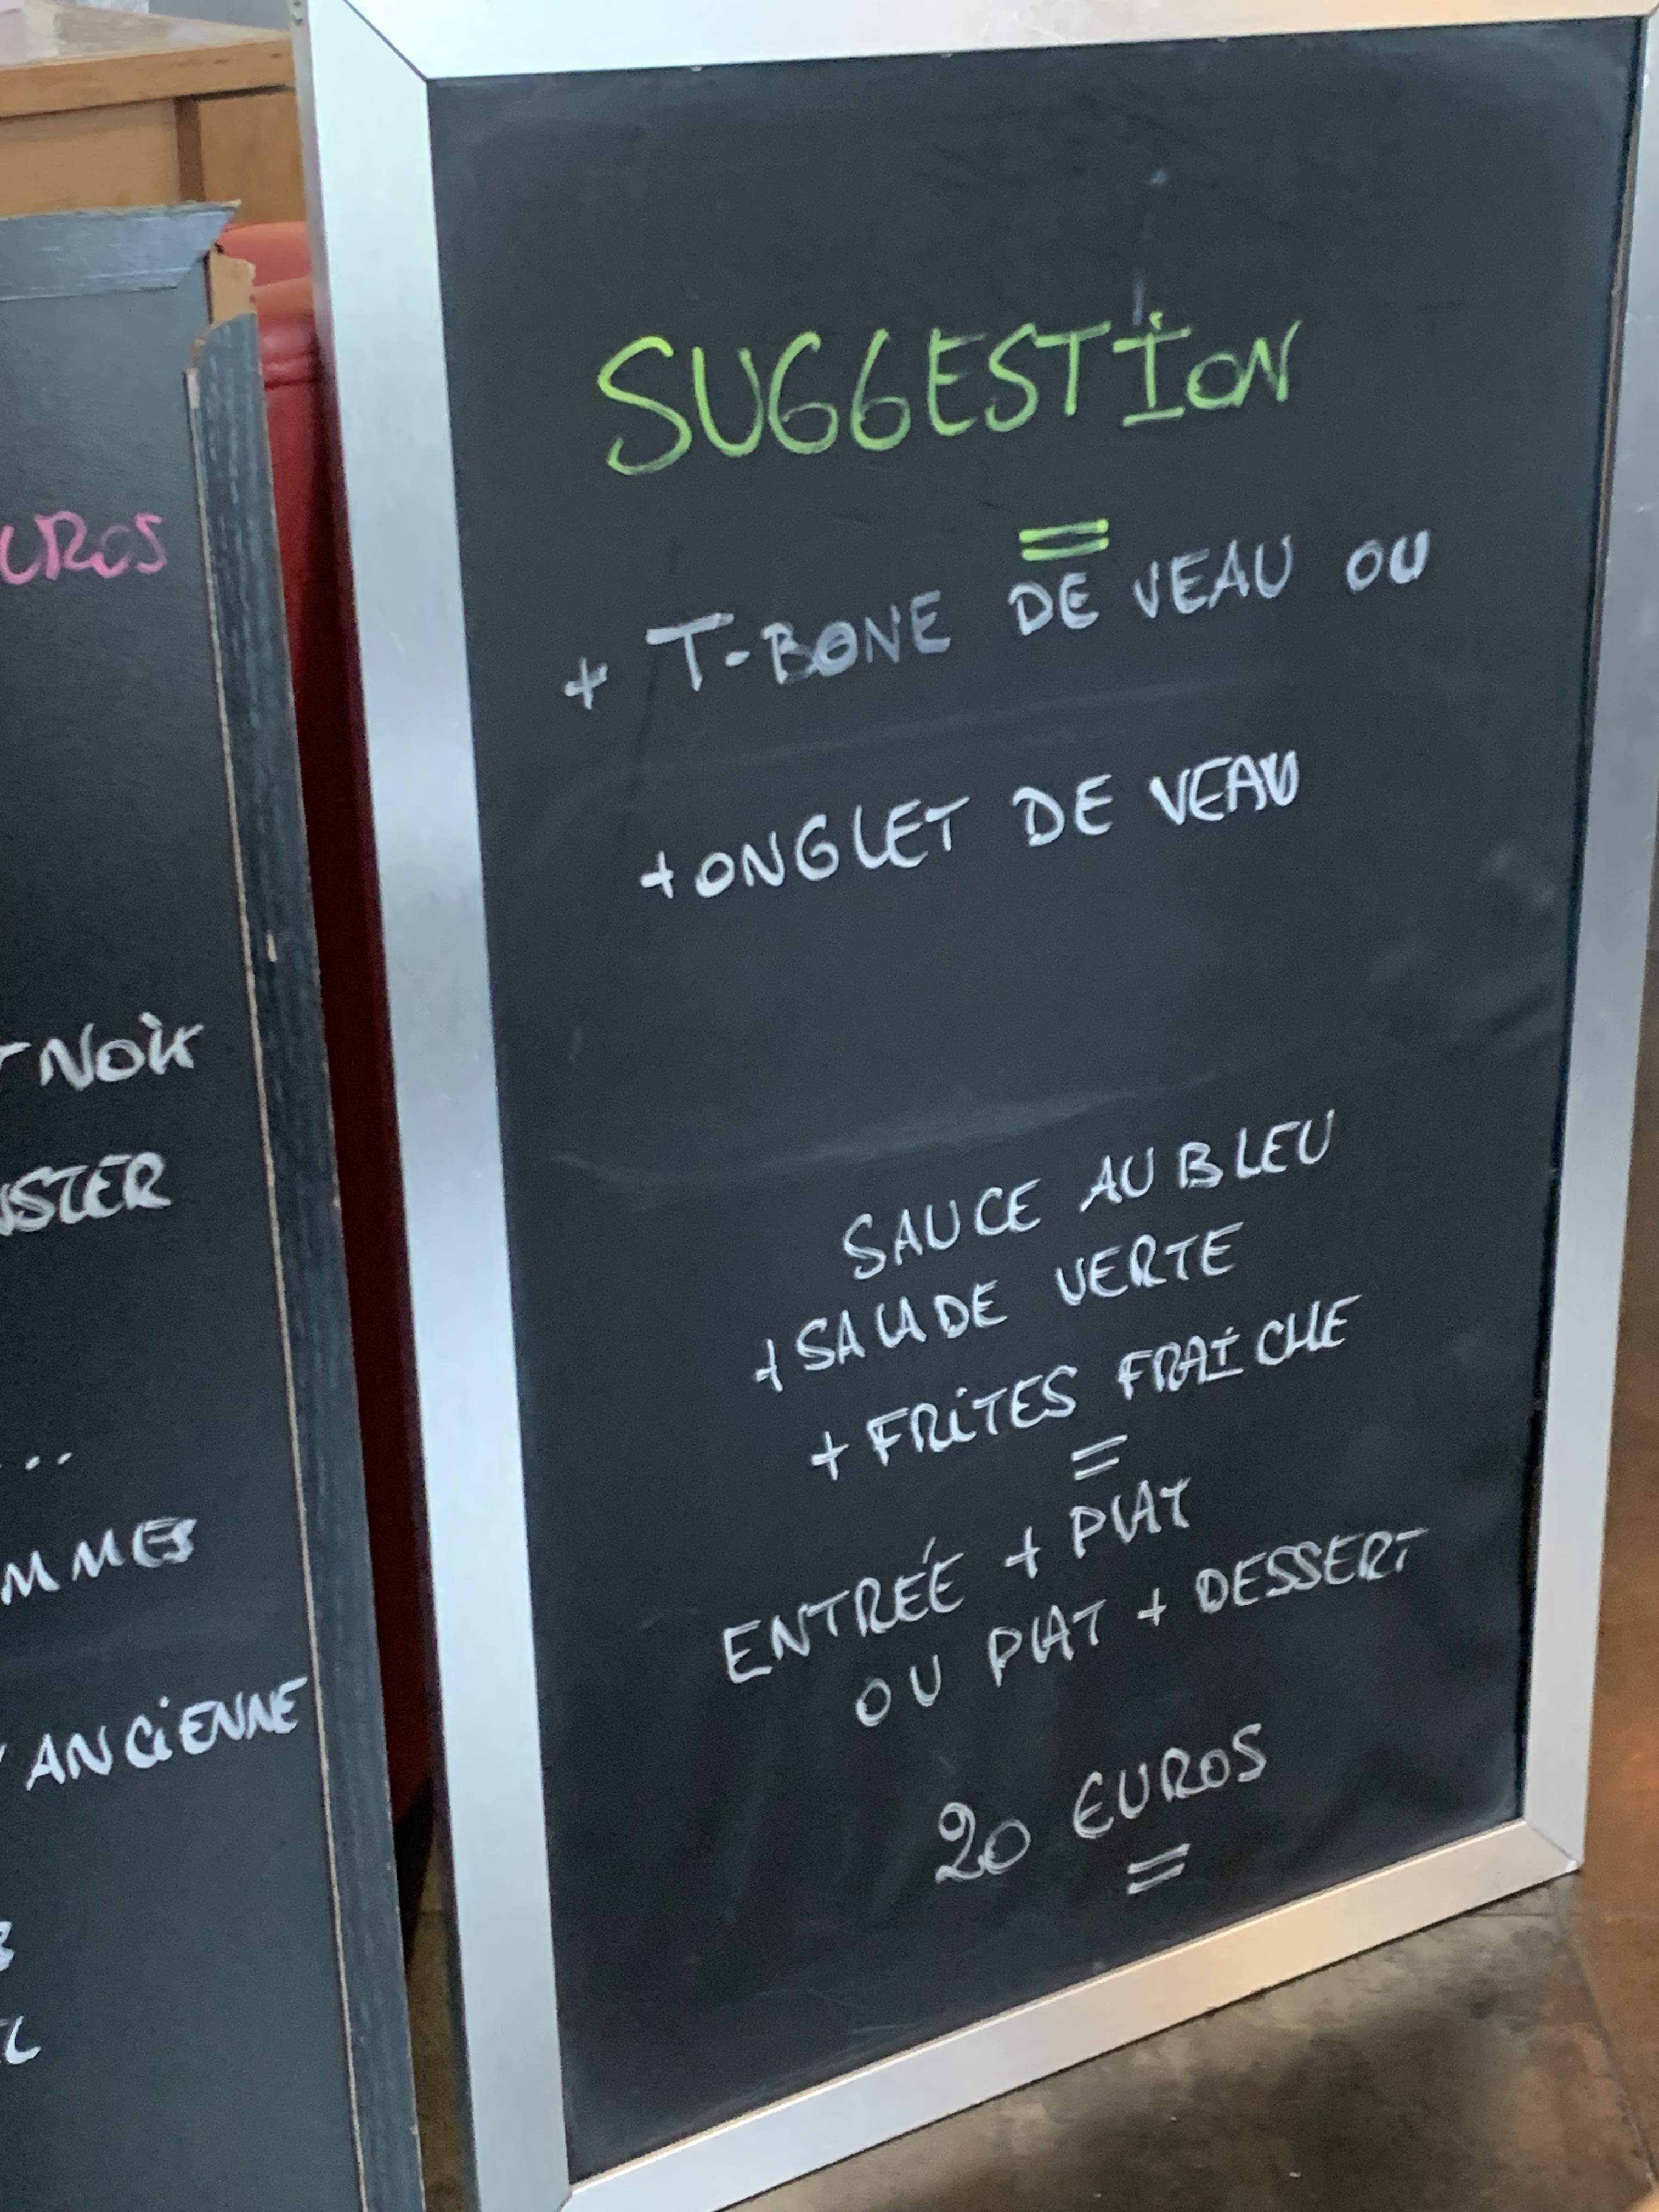 UROS
NOIR
STER
...
MMES
ANCIENNE
SUGGESTION
=
+ T-BONE DE VEAU OU
+ ONGLET DE VEAU
SAUCE AU BLEU
+ SALADE VERTE
+ FRITES FRAICHE
=
ENTRÉE + PLAT
OU PLAT + DESSERT
20 EUROS
=